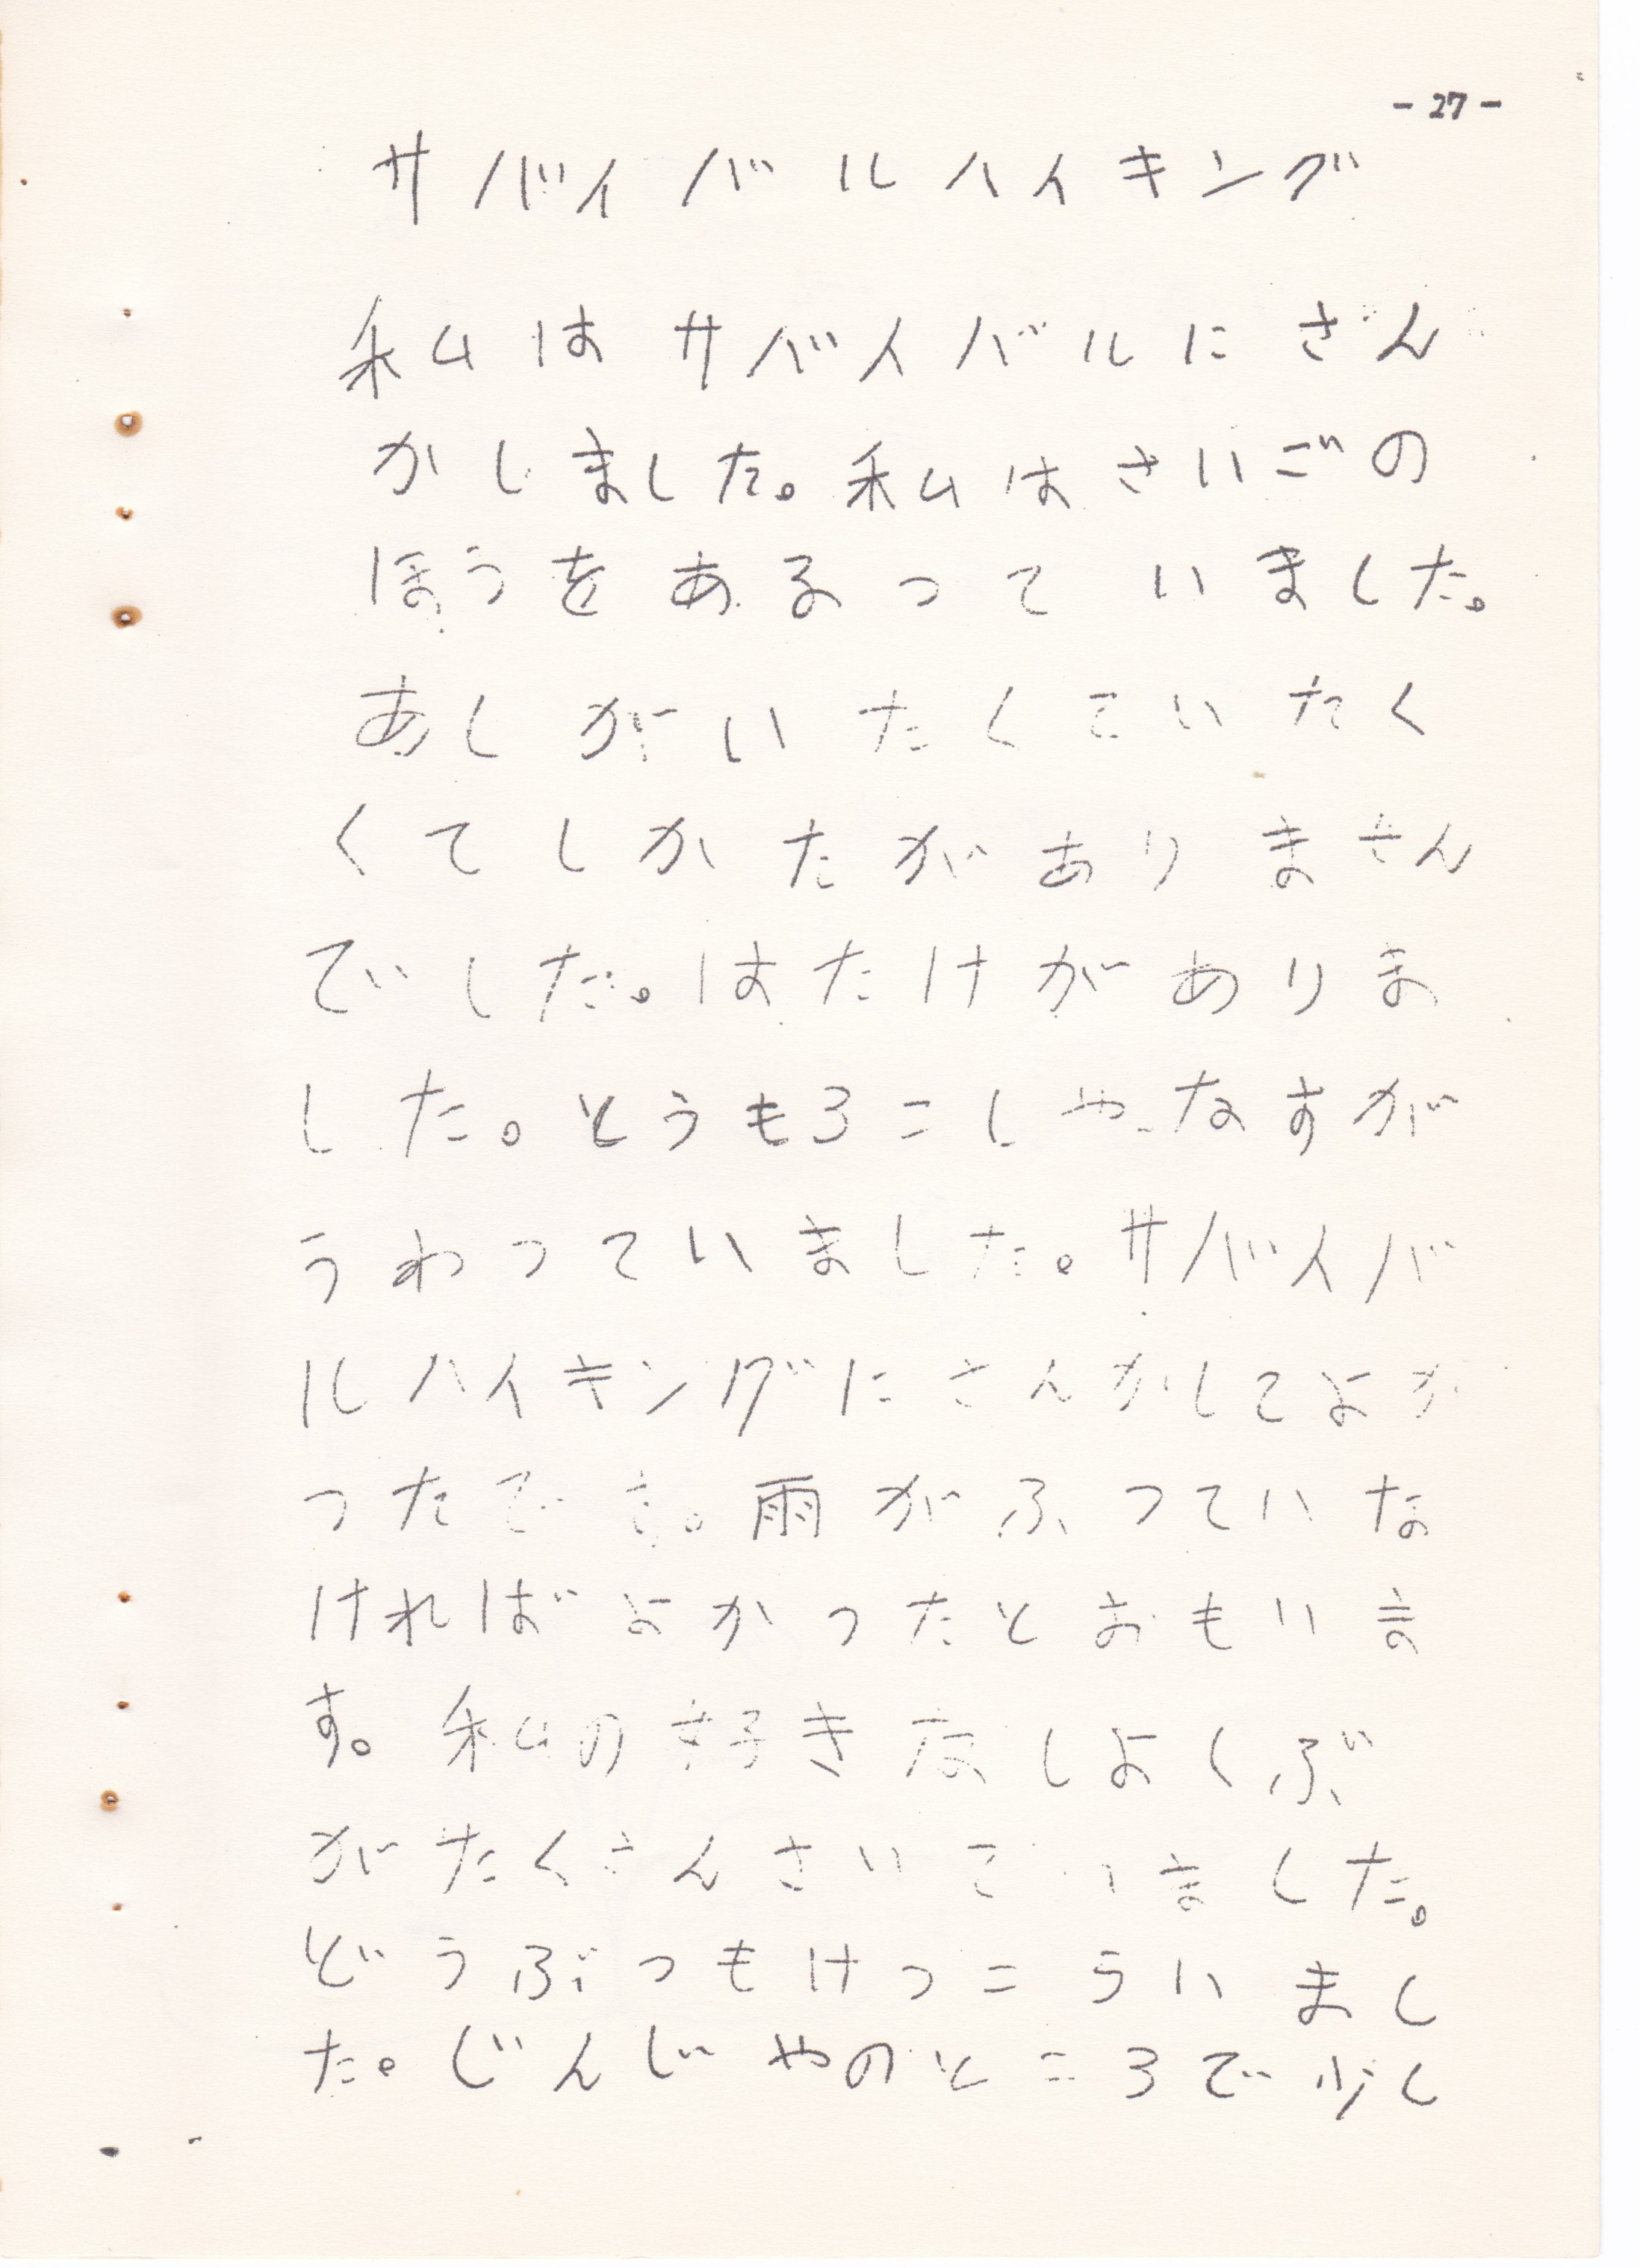 - 27 -
サバイバルハイキング
私はサバイバルにざん
かしました。私はさいごの
ほうをあるっていました。
あしがいたくていたく
くてしかたがありません
でしただ。はたけがありま
した。とうもろこしや、なすが
うわっていました。サバイバ
ルハイキングにさんかしてよか
ったです。雨がふっていな
ければよかったとおもいま
す。私の好きなしよくぶ
がたくさんさいていました。
どうぶつもけっこういまし
た。じんじやのところで少し